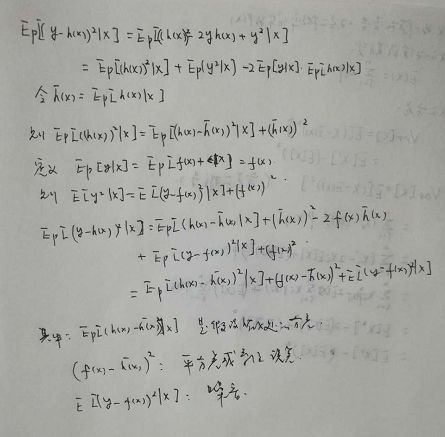 E_P[(y-h(x))²|x] = E_P[(h(x))²- 2yh(x) + y²|x]
= E_P[(h(x))²|x] + E_P[y²|x] - 2E_P[y|x]·E_P[h(x)|x]
令 h̄(x) = E_P[h(x)|x]
则 E_P[(h(x))²|x] = E_P[(h(x)-h̄(x))²|x] + (h̄(x))²
定义 E_P[y|x] = E_P[f(x)+ε|x] = f(x).
则 E[y²|x] = E[(y-f(x))²|x] + (f(x))².
E_P[(y-h(x))²|x] = E_P[(h(x)-h̄(x))²|x] + (h̄(x))² - 2f(x)h̄(x)
+ E_P[(y-f(x))²|x] + (f(x))²
= E_P[(h(x)-h̄(x))²|x] + (f(x)-h̄(x))² + E[(y-f(x))²|x]
其中: E_P[(h(x)-h̄(x))²|x] 是假设在x处的方差
(f(x)-h̄(x))²: 平方差或者说误差.
E[(y-f(x))²|x]: 噪音.